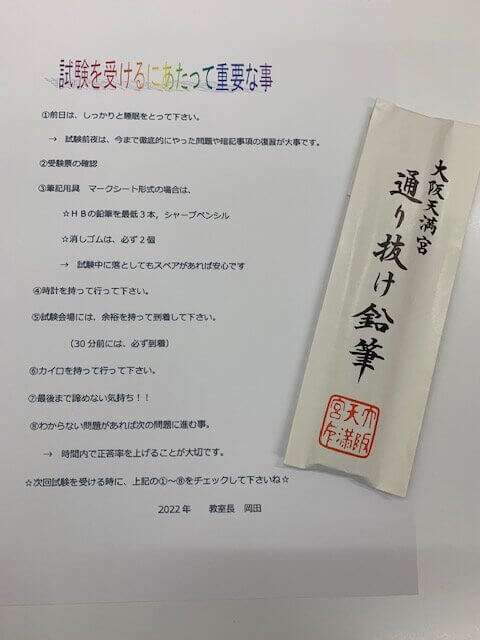 試験を受けるにあたって重要な事
①前日は、しっかりと睡眠をとって下さい。
→ 試験前夜は、今まで徹底的にやった問題や暗記事項の復習が大事です。
②受験票の確認
③筆記用具 マークシート形式の場合は、
☆HBの鉛筆を最低3本，シャープペンシル
☆消しゴムは、必ず2個
→ 試験中に落としてもスペアがあれば安心です
④時計を持って行って下さい。
⑤試験会場には、余裕を持って到着して下さい。
（30分前には、必ず到着）
⑥カイロを持って行って下さい。
⑦最後まで諦めない気持ち！！
⑧わからない問題があれば次の問題に進む事。
→ 時間内で正答率を上げることが大切です。
☆次回試験を受ける時に、上記の①～⑧をチェックして下さいね☆
2022年 教室長 岡田
大阪天満宮
通り抜け鉛筆
大阪
天満
宮